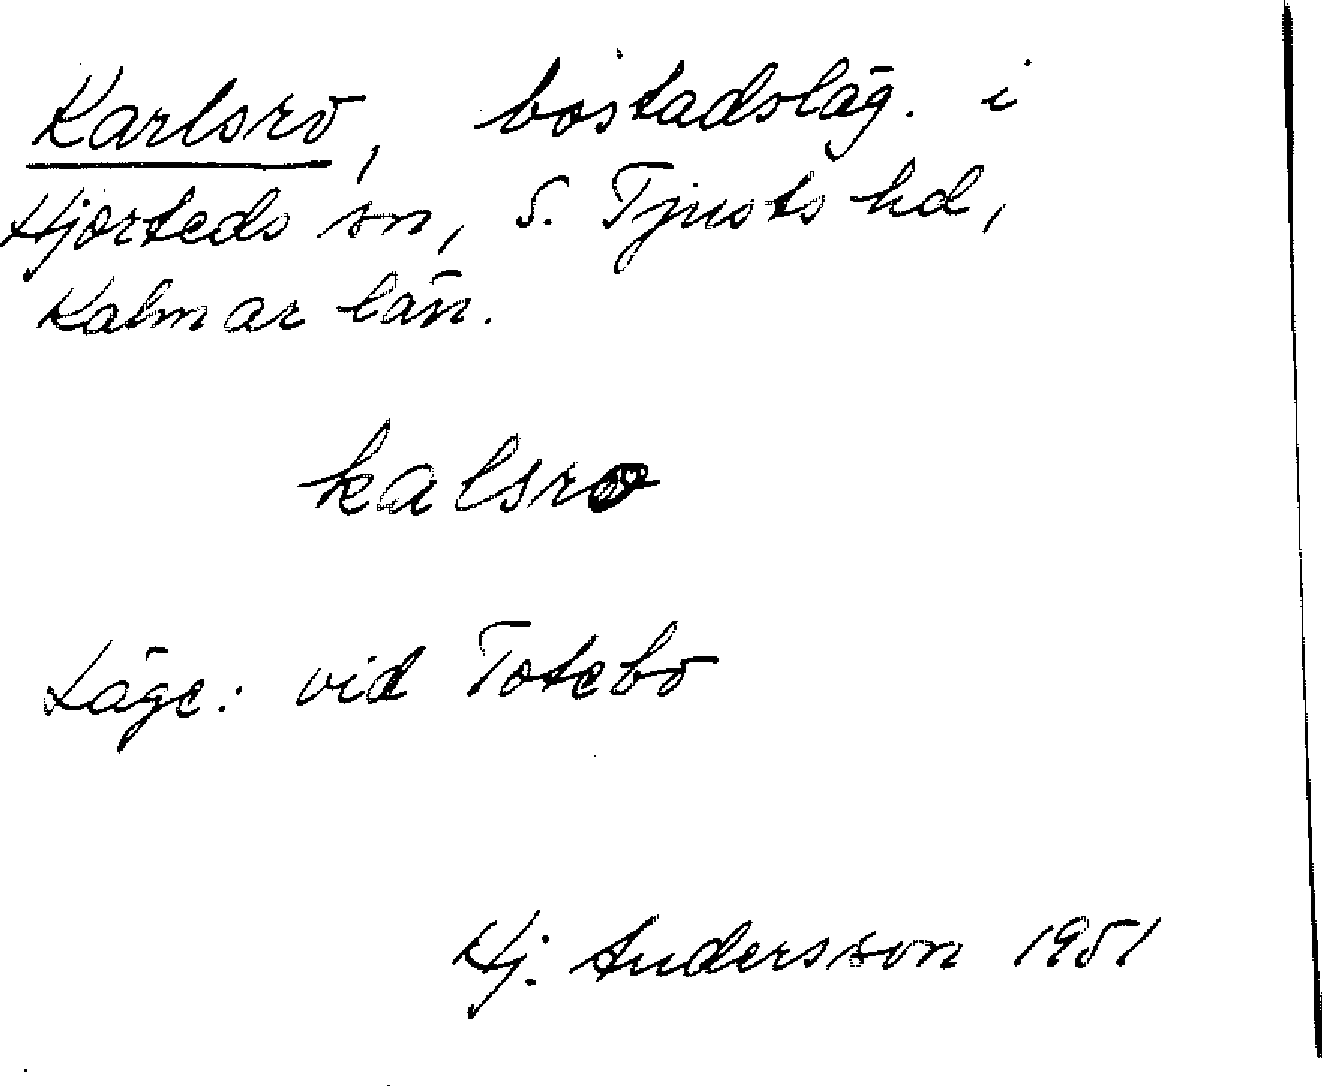 Karlsro, bostadsläg. i
Hjorteds sn, S. Tjusts hd,
Kalmar län.
kalsro
Läge: vid Totebo
Hj. Andersson 1951